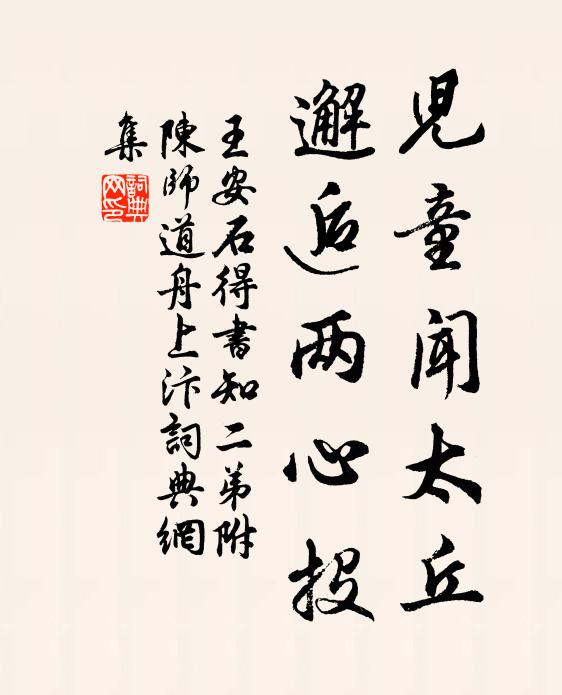 兒童闻太丘
邂逅两心投
王安石得書知二弟附
陳師道舟上汴詞典網
集
詞典网印